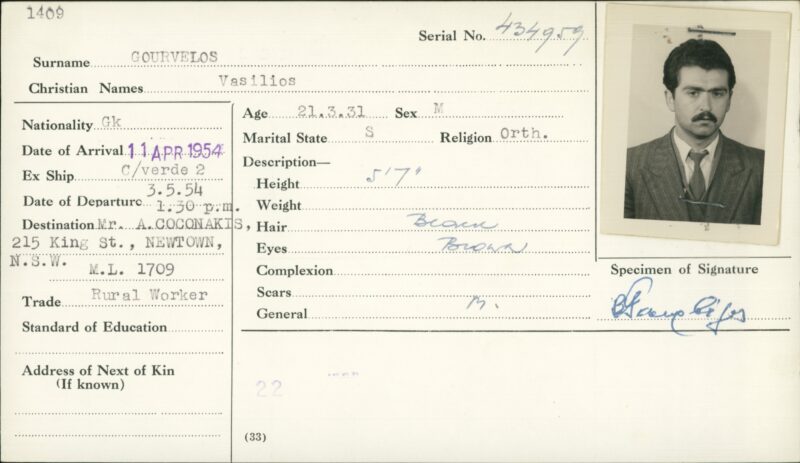 1409
Serial No. 434959
Surname GOURVELOS
Christian Names Vasilios
Nationality Gk
Date of Arrival 11 APR 1954
Ex Ship C/verde 2
Date of Departure 3.5.54
1.30 p.m.
Destination Mr. A.COCONAKIS,
215 King St., NEWTOWN,
N.S.W. M.L. 1709
Trade Rural Worker
Standard of Education
Address of Next of Kin
(If known)
Age 21.3.31 Sex M
Marital State S Religion Orth.
Description—
Height 5'7"
Weight
Hair
Eyes Brown
Complexion
Scars
General M.
22
(33)
Specimen of Signature